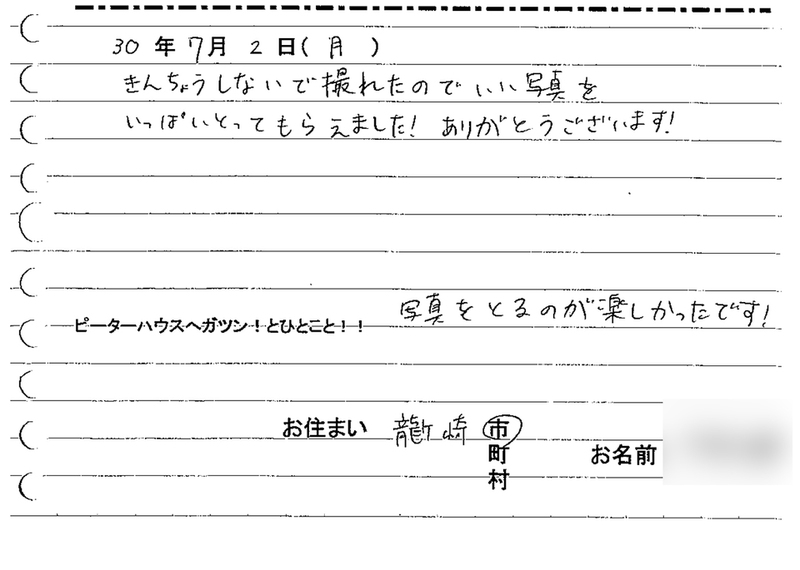 30 年 7 月 2 日( 月 )
きんちょうしないで撮れたのでいい写真を
いっぱいとってもらえました! ありがとうございます!
写真をとるのが楽しかったです!
ピーターハウスへガツン!とひとこと!!
お住まい 龍ケ崎 市
町
村
お名前